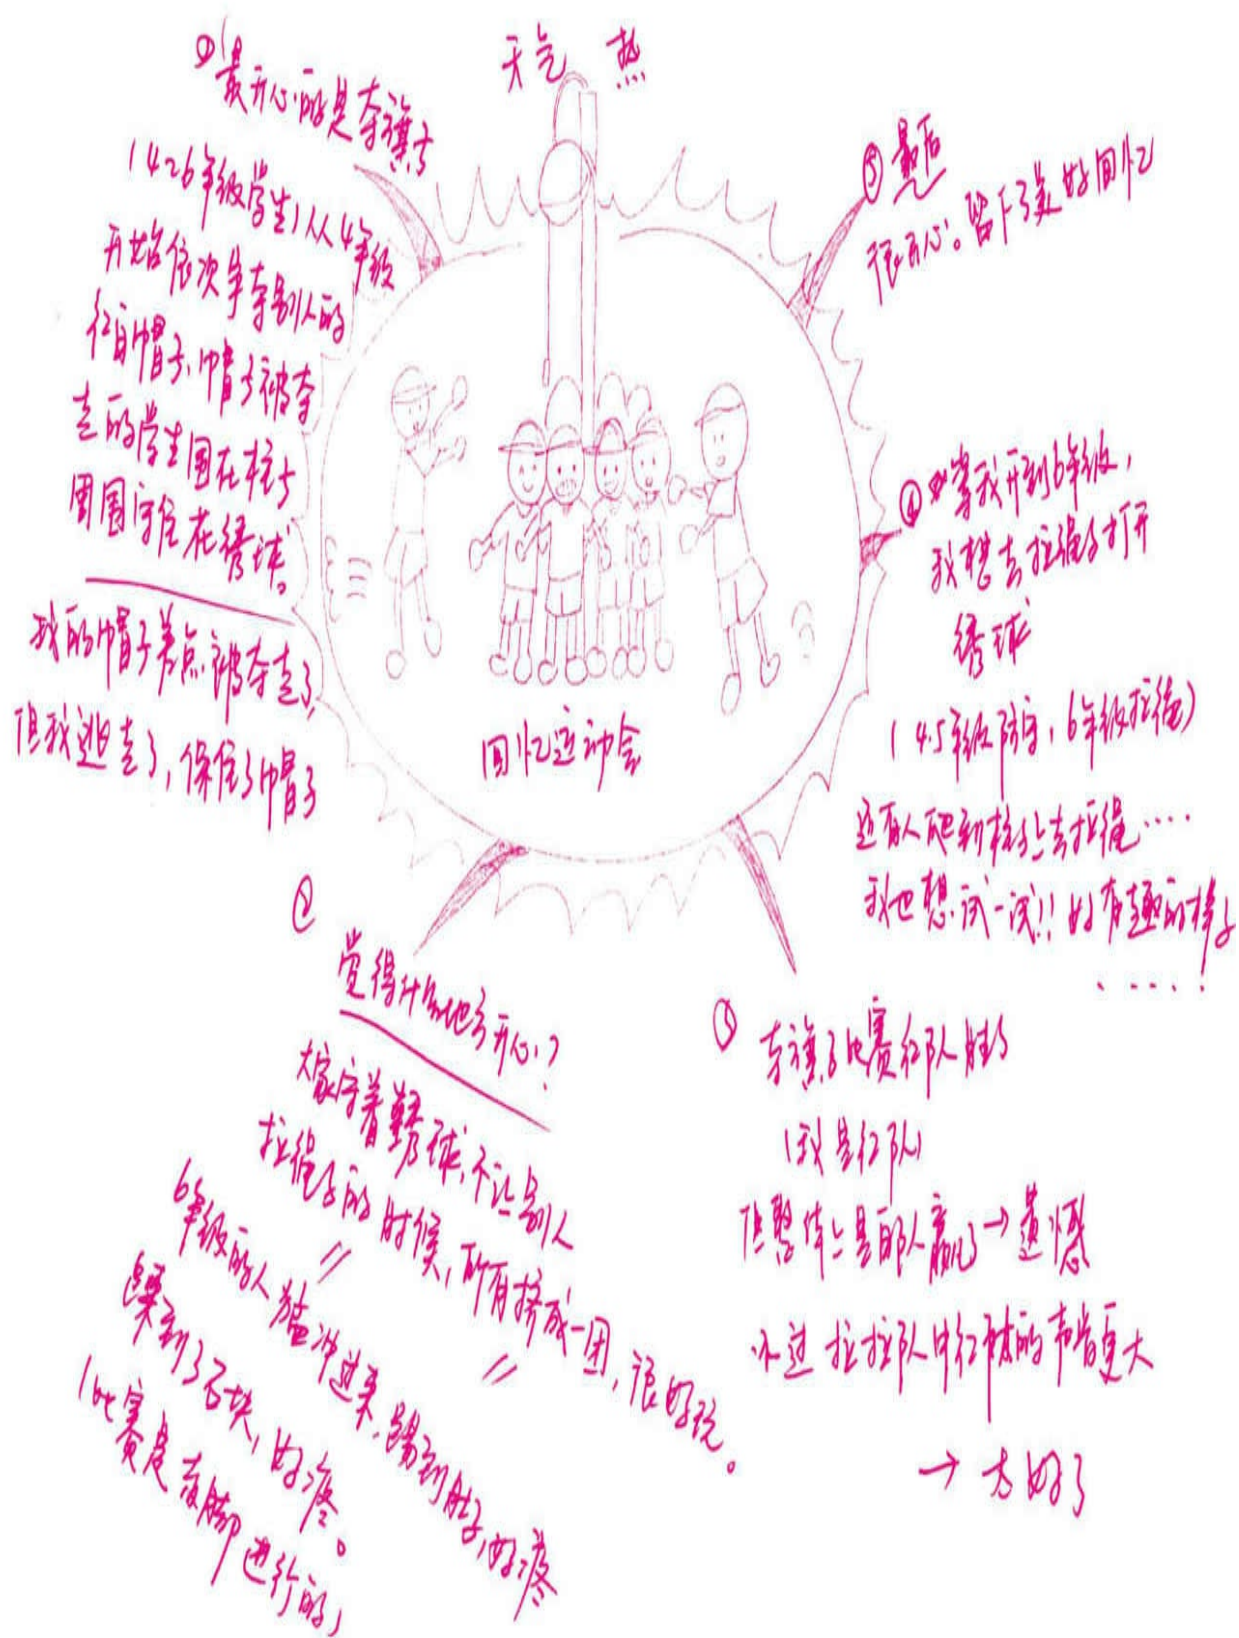 天气 热
①最开心的是夺旗子
(4~6年级学生)从4年级
开始依次争夺别人的
红白帽子,帽子被夺
走的学生围在柱子
周围守住在绣球。
我的帽子差点被夺走了,
但我逃走了,保住了帽子
回忆运动会
②
觉得什么地方开心?
大家守着绣球,不让别人
拉绳子的时候,所有挤成一团,很好玩。
6年级的人猛冲过来,踢到肚子,好疼
踩到了石块,好疼。
(比赛是赤脚进行的)
③ 夺旗子比赛红队胜了
(我是红队)
但整体上是白队赢了→遗憾
不过拉拉队中红队的声音更大
→太好了
④ 等我升到6年级,
我想去拉绳子打开
绣球
(4.5年级防守,6年级拉绳)
还有人爬到柱子上去拉绳……
我也想试一试!!好有趣的样子
……!
⑤ 最后
很开心。留下了美好回忆